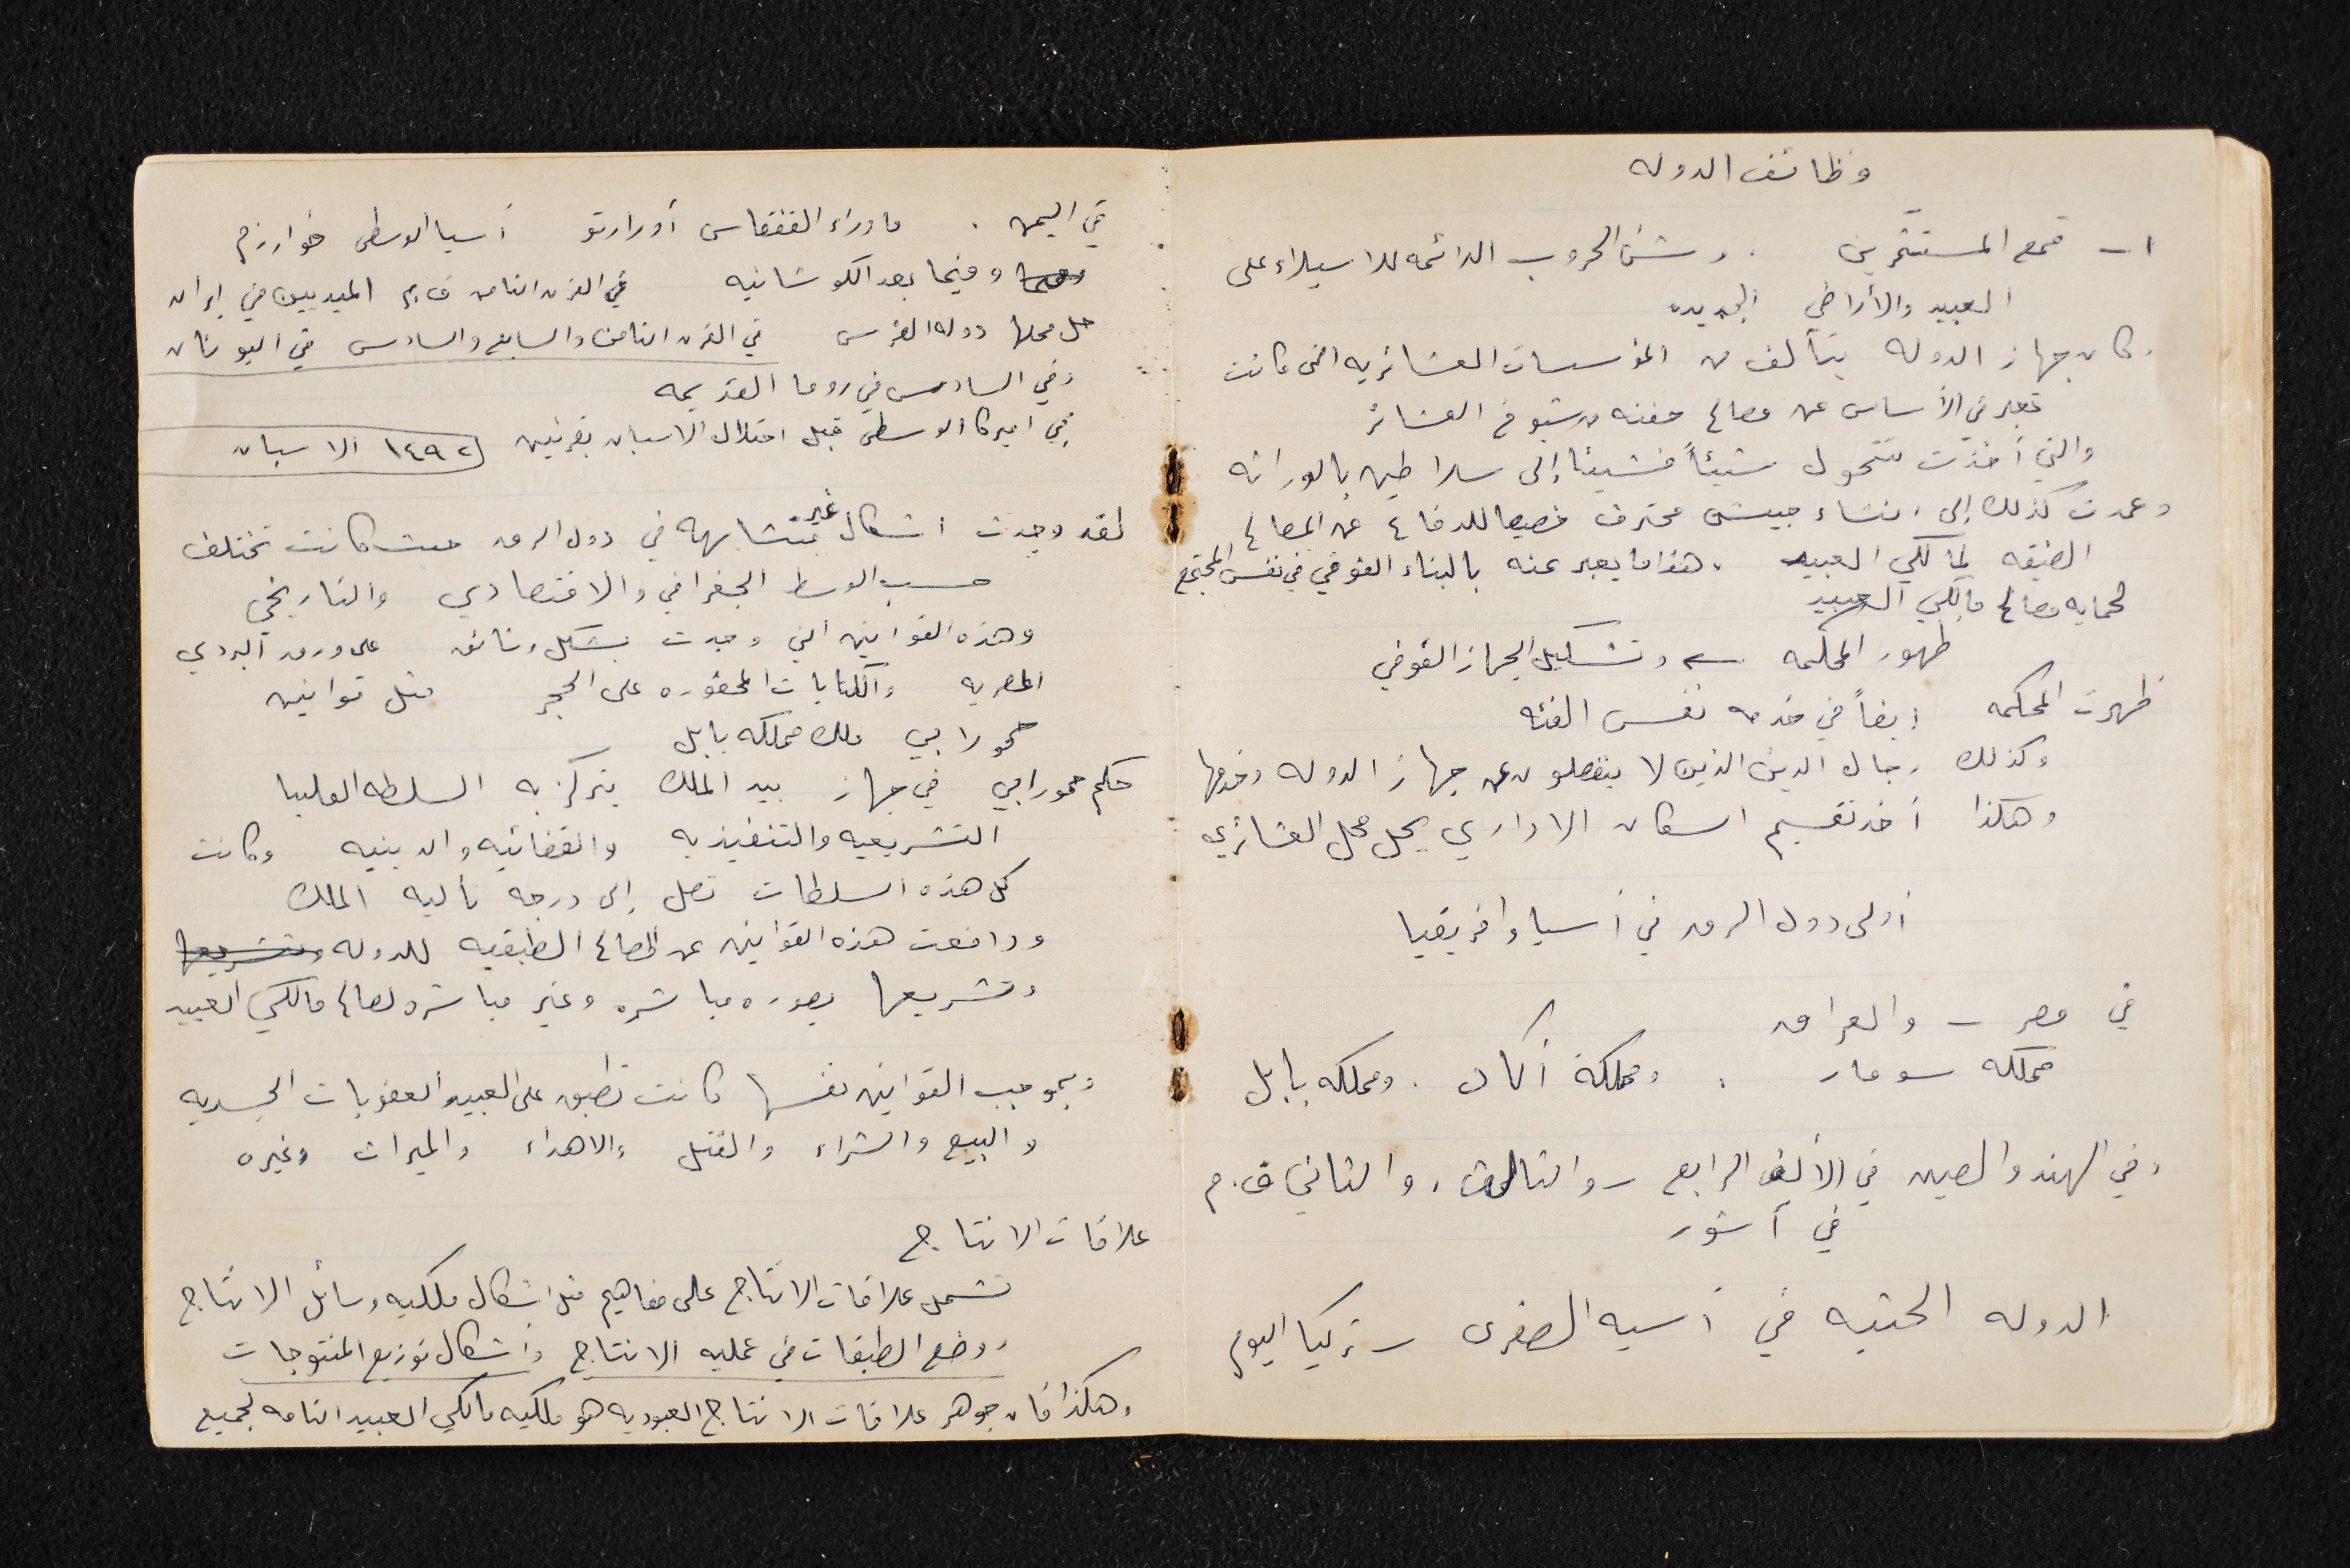 وظائف الدوله
١ – قمع المستثمرين . وشن الحروب الدائمه للاستيلاء على
العبيد والأراضي الجديده
وكان جهاز الدوله يتألف من المؤسسات العشائريه التي كانت
تعبر في الأساس عن مصالح حفنه من شيوخ العشائر
والتي أخذت تتحول شيئاً فشيئا إلى سلاطين بالوراثه
وعمدت كذلك إلى انشاء جيش محترف خصيصا للدفاع عن المصالح
الضيقه لمالكي العبيد . هذا ما يعبر عنه بالبناء الفوقي في نفس المجتمع
لحمايه مصالح مالكي العبيد
ظهور المحكمه ← وتشكيل الجهاز الفوقي
ظهرت المحكمه ايضاً في خدمه نفس الفئه
وكذلك رجال الدين الذين لا ينفصلون عن جهاز الدوله وخدمها
وهكذا أخذ تقسيم السكان الاداري يحل محل العشائري
أولى دول الرق في أسيا وافريقيا
في مصر – والعراق
مملكه سومار . ومملكة أكاد . ومملكه بابل
وفي الهند والصين في الألف الرابع – والثالث . والثاني ق.م
في آشور
الدوله الحثيه في أسيه الصغرى – تركيا اليوم
في اليمن . ما وراء القفقاس أورارتو أسيا الوسطى خوارزم
وفيما بعد الكوشانيه في القرن الثامن ق.م الميديين في إيران
حل محلها دوله الفرس في القرن الثامن والسابع والسادس في اليونان
وفي السادس في روما القديمه
في اميركا الوسطى قبل احتلال الاسبان بقرنين ١٤٩٢ الاسبان
لقد وجدت اشكال غير متشابهه في دول الرق حيث كانت تختلف
حسب الوسط الجغرافي والاقتصادي والتاريخي
وهذه القوانين التي وجدت بشكل وثائق على ورق البردي
المصريه والكتابات المحفوره على الحجر مثل قوانين
حمورابي ملك مملكه بابل
حكم حمورابي في جهاز بيد الملك يتركز به السلطه العليا
التشريعيه والتنفيذيه والقضائيه والدينيه وكانت
كل هذه السلطات تصل إلى درجه تأليه الملك
ودافعت هذه القوانين عن المصالح الطبقيه للدوله وتشريعها
وتشريعها بصوره مباشره وغير مباشره لصالح مالكي العبيد
وبموجب القوانين نفسها كانت تطبق على العبيد العقوبات الجسديه
والبيع والشراء والقتل والاهداء والميراث وغيره
علاقات الانتاج
تشمل علاقات الانتاج على مفاهيم مثل اشكال ملكيه وسائل الانتاج
ووضع الطبقات في عمليه الانتاج وأشكال توزيع المنتوجات
وهكذا فان جوهر علاقات الانتاج العبوديه هو ملكيه مالكي العبيد التامه لجميع